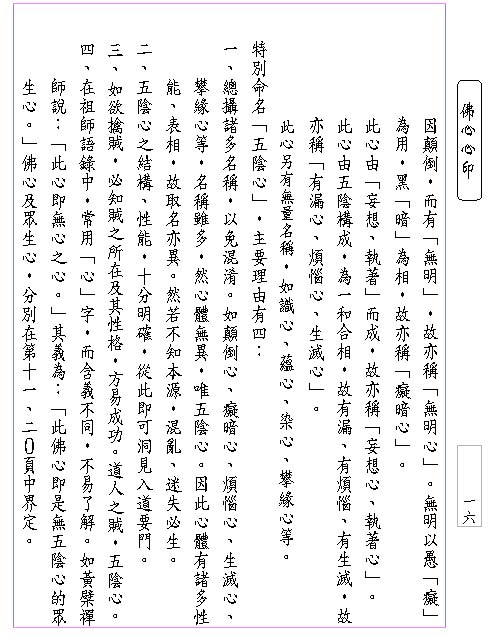 佛心心印
因顛倒，而有「無明」，故亦稱「無明心」。無明以愚「癡」
為用，黑「暗」為相，故亦稱「癡暗心」。
此心由「妄想、執著」而成，故亦稱「妄想心、執著心」。
此心由五陰構成，為一和合相，故有漏、有煩惱、有生滅，故
亦稱「有漏心、煩惱心、生滅心」。
此心另有無量名稱，如識心、蘊心、染心、攀緣心等。
特別命名「五陰心」，主要理由有四：
一、總攝諸多名稱，以免混淆。如顛倒心、癡暗心、煩惱心、生滅心、
攀緣心等，名稱雖多，然心體無異，唯五陰心。因此心體有諸多性
能、表相，故取名亦異。然若不知本源，混亂、迷失必生。
二、五陰心之結構、性能，十分明確，從此即可洞見入道要門。
三、如欲擒賊，必知賊之所在及其性格，方易成功。道人之賊，五陰心。
四、在祖師語錄中，常用「心」字，而含義不同，不易了解。如黃檗禪
師說：「此心即無心之心。」其義為：「此佛心即是無五陰心的眾
生心。」佛心及眾生心，分別在第十一、二0頁中界定。
一六